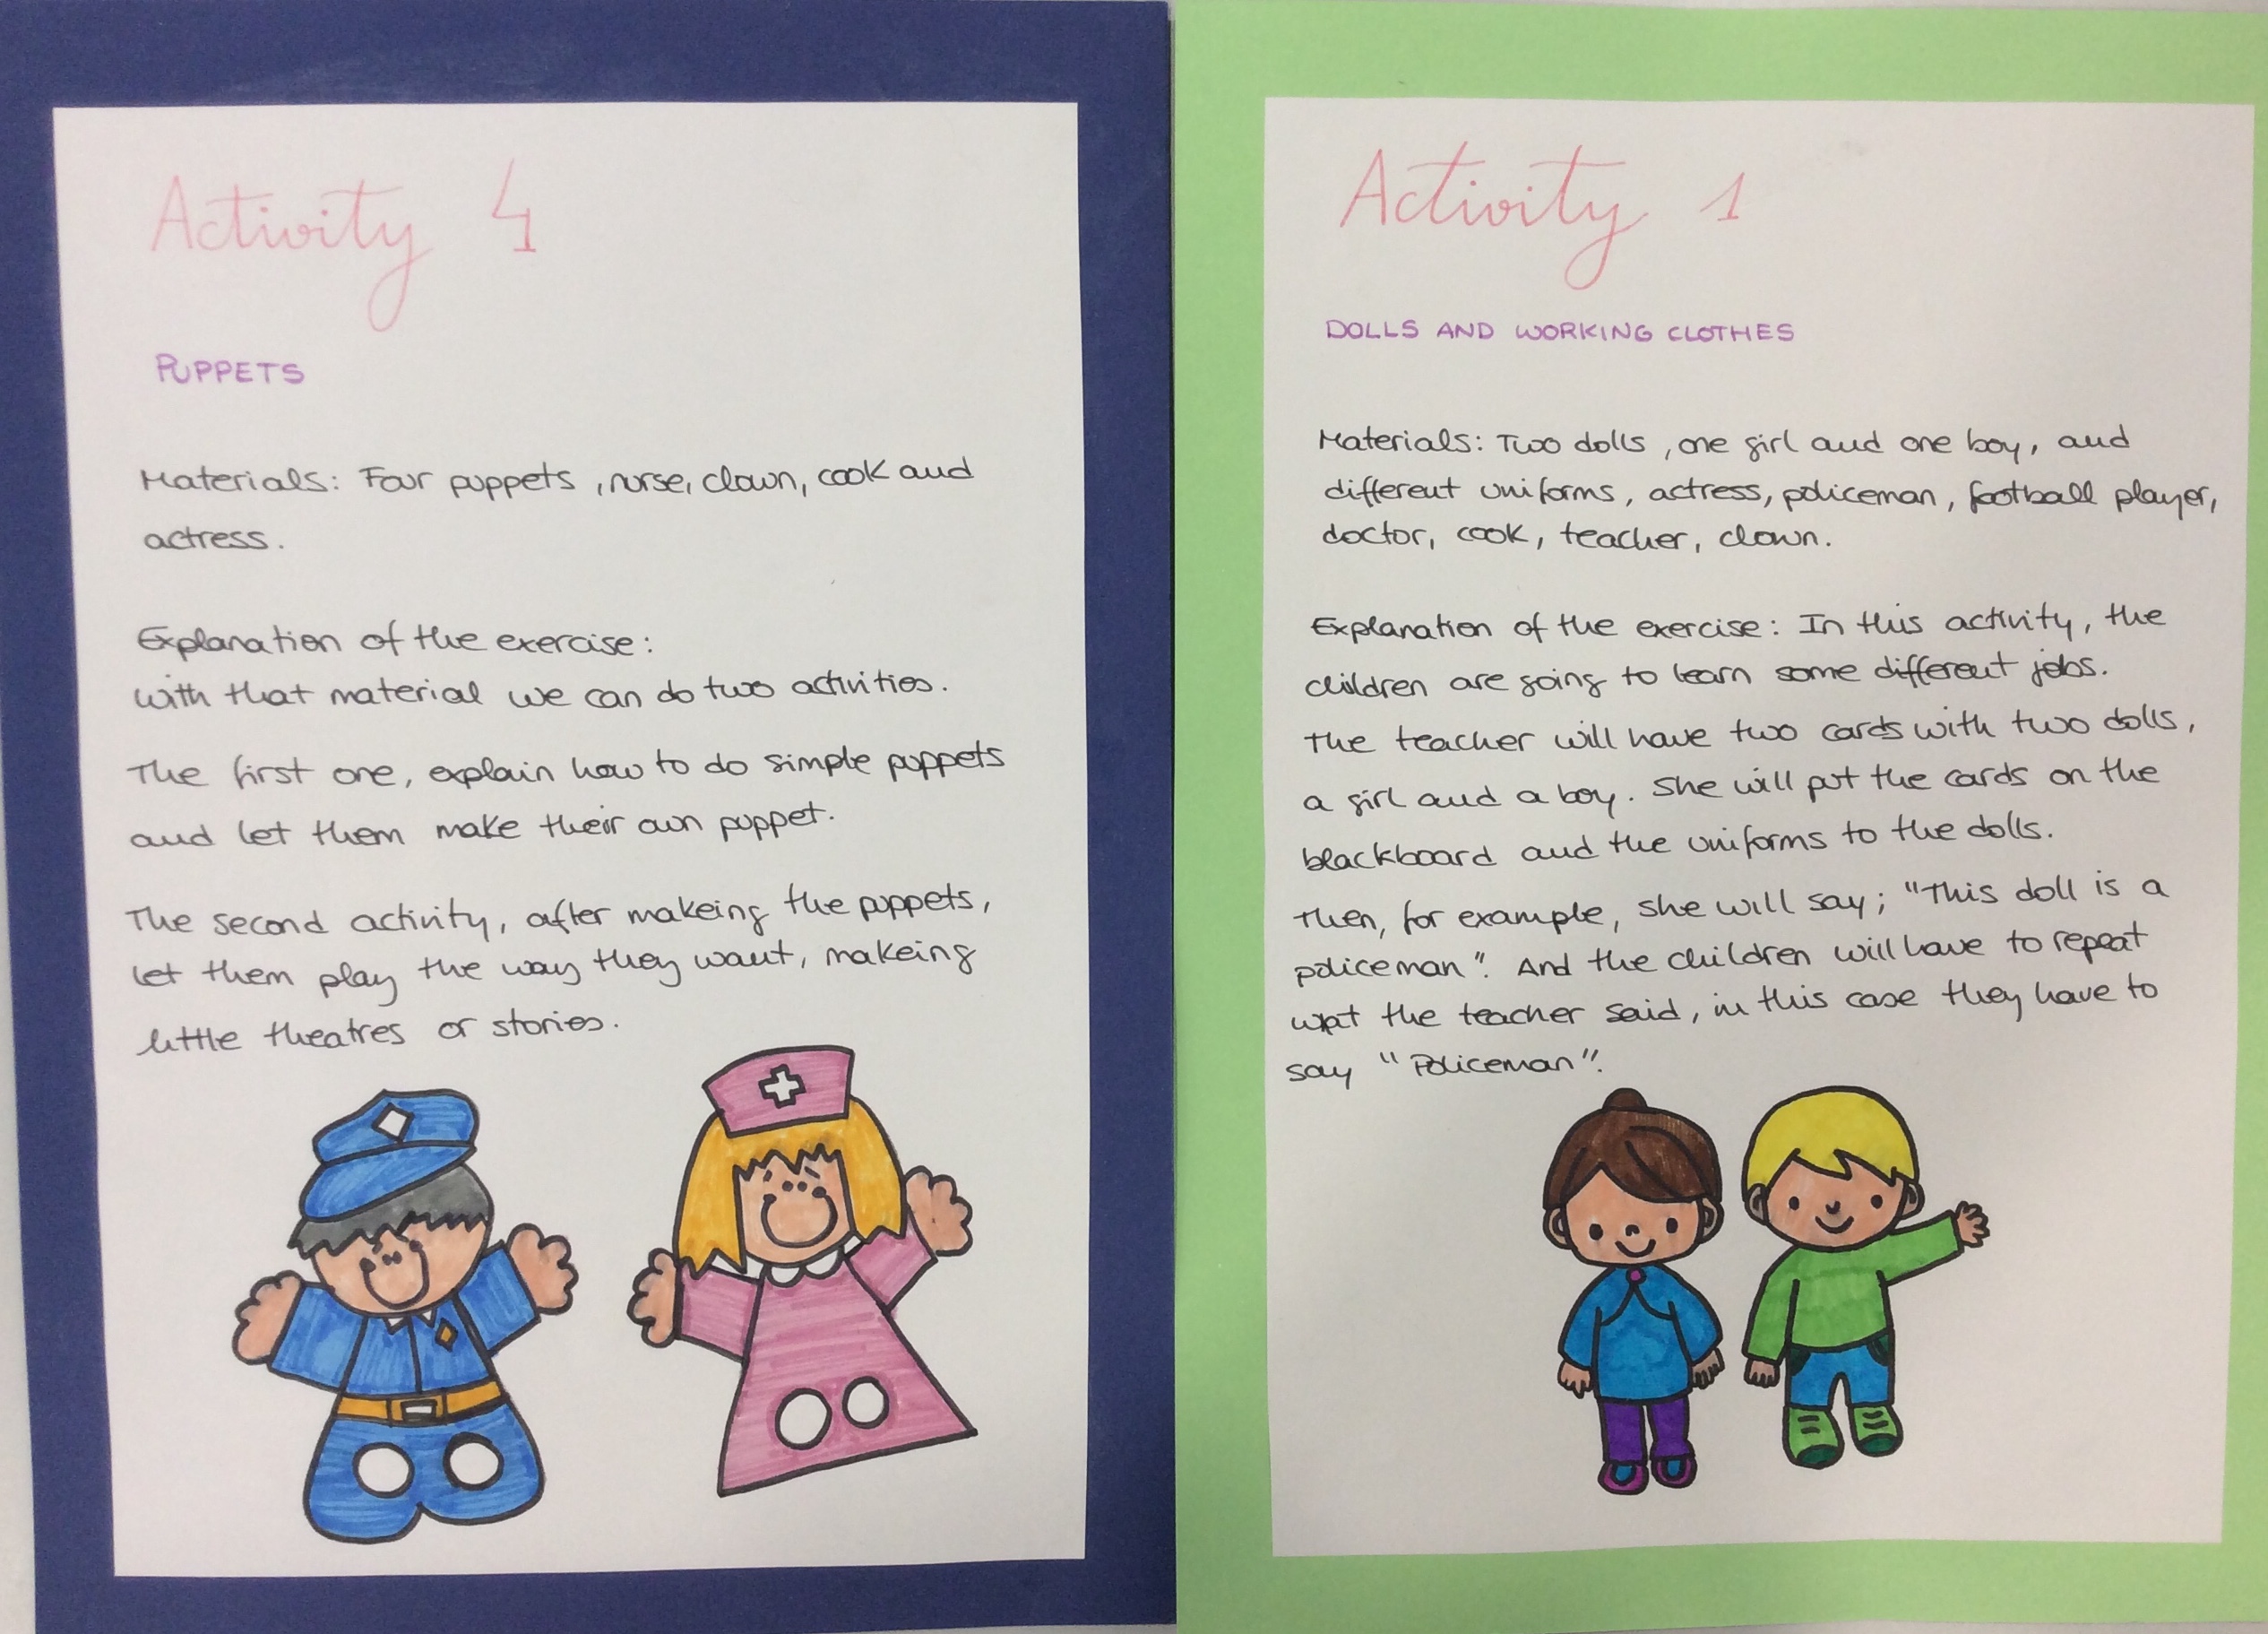 Activity 4
PUPPETS
Materials: Four puppets, nurse, clown, cook and
actress.
Explanation of the exercise:
with that material we can do two activities.
The first one, explain how to do simple puppets
and let them make their own puppet.
The second activity, after makeing the puppets,
let them play the way they want, makeing
little theatres or stories.
Activity 1
DOLLS AND WORKING CLOTHES
Materials: Two dolls, one girl and one boy, and
different uniforms, actress, policeman, football player,
doctor, cook, teacher, clown.
Explanation of the exercise: In this activity, the
children are going to learn some different jobs.
The teacher will have two cards with two dolls,
a girl and a boy. She will put the cards on the
blackboard and the uniforms to the dolls.
Then, for example, she will say; "This doll is a
policeman". And the children will have to repeat
what the teacher said, in this case they have to
say "Policeman".